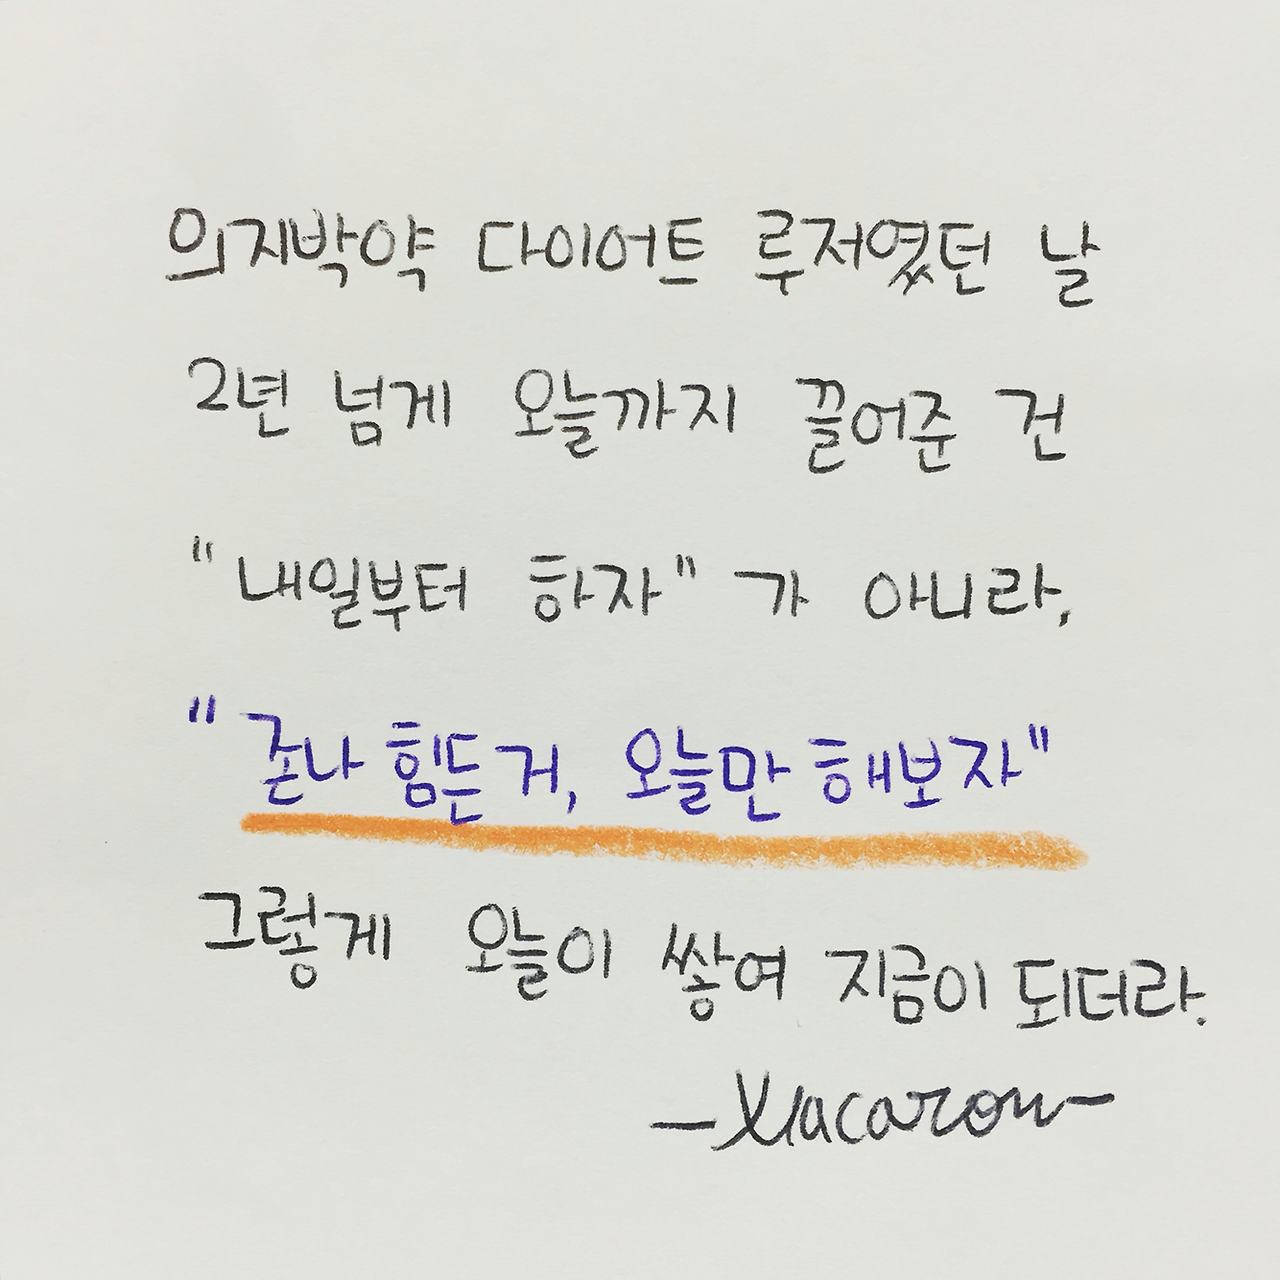 의지박약 다이어트 루저였던 날
2년 넘게 오늘까지 끌어준 건
"내일부터 하자"가 아니라,
"존나 힘든거, 오늘만 해보자"
그렇게 오늘이 쌓여 지금이 되더라.
-Macaron-